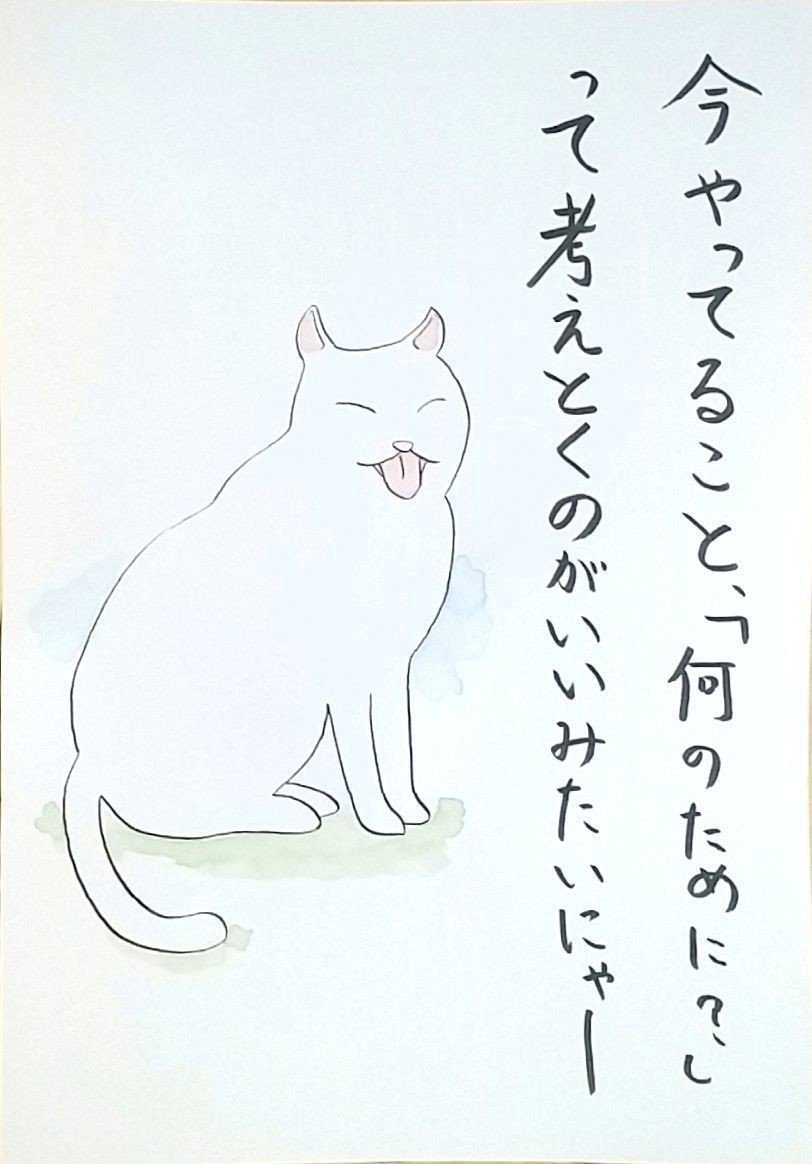 今やってること、「何のために？」
って考えとくのがいいみたいにゃー